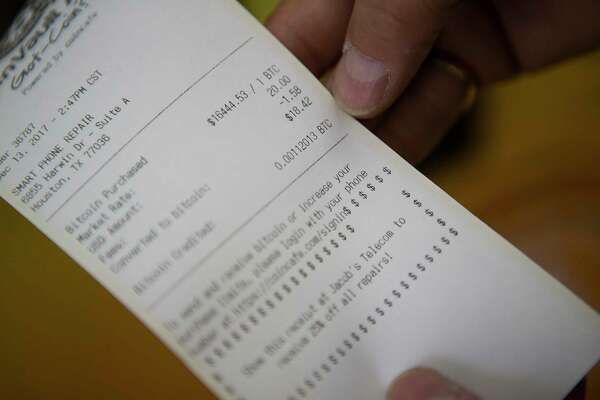 nVault
Got-Coin
Powered by coincafe
36787
13, 2017 - 2:47PM CST
SMART PHONE REPAIR
6855 Harwin Dr - Suite A
Houston, TX 77036
Bitcoin Purchased
Market Rate: $16444.53 / 1 BTC
USD Amount: 20.00
Fees: -1.58
Converted to bitcoin: $18.42
Bitcoin Credited: 0.00112013 BTC
To send and receive bitcoin or increase your
purchase limits, please login with your phone
number at https://coincafe.com/signin$ $ $ $ $
$ $ $ $ $ $ $ $ $ $ $ $ $ $ $ $ $ $ $
Show this receipt at Jacub's Telecom to
receive 25% off all repairs!
$ $ $ $ $ $ $ $ $ $ $ $ $ $ $ $ $ $ $